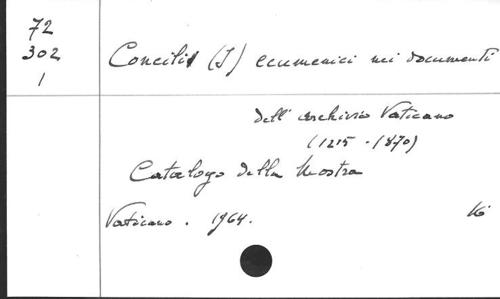 72
302
1
Concilii (I) ecumenici nei documenti
dell' archivio Vaticano
(1215 - 1870)
Catalogo della Mostra
Vaticano. 1964.